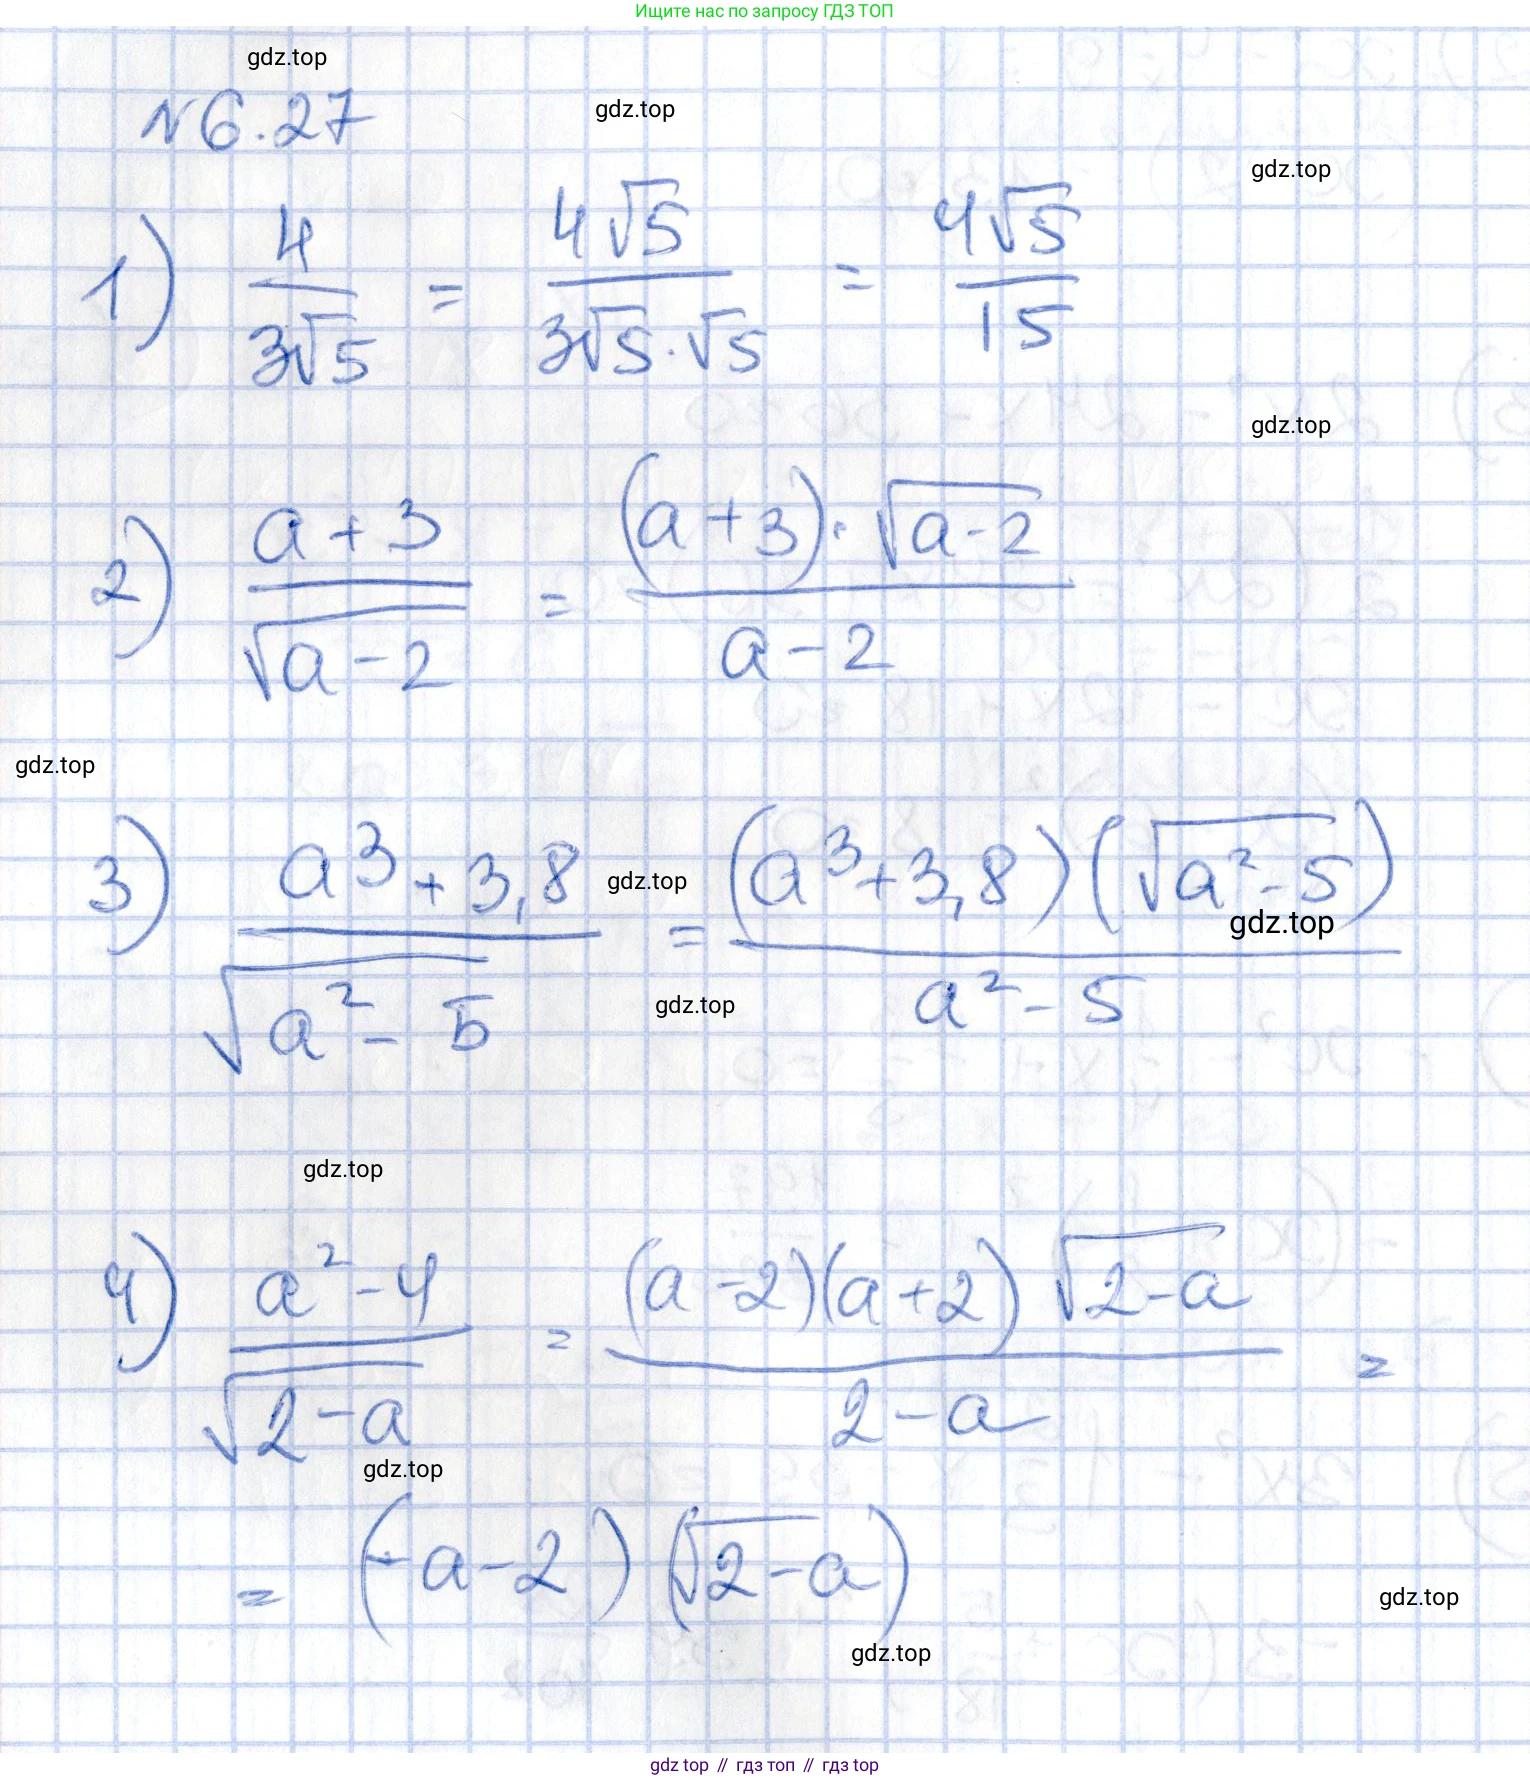 Ищите нас по запросу ГДЗ ТОП
gdz.top
№ 6.27
gdz.top
gdz.top
1) 4/(3√5) = 4√5/(3√5·√5) = 4√5/15
gdz.top
2) (a+3)/√(a-2) = (a+3)·√(a-2)/(a-2)
gdz.top
3) (a³+3,8)/√(a²-5) = (a³+3,8)(√(a²-5))/(a²-5)
gdz.top
gdz.top
gdz.top
gdz.top
4) (a²-4)/√(2-a) = (a-2)(a+2)√(2-a)/(2-a) =
gdz.top
= (-a-2)(√(2-a))
gdz.top
gdz.top
gdz top // гдз топ // гдз top